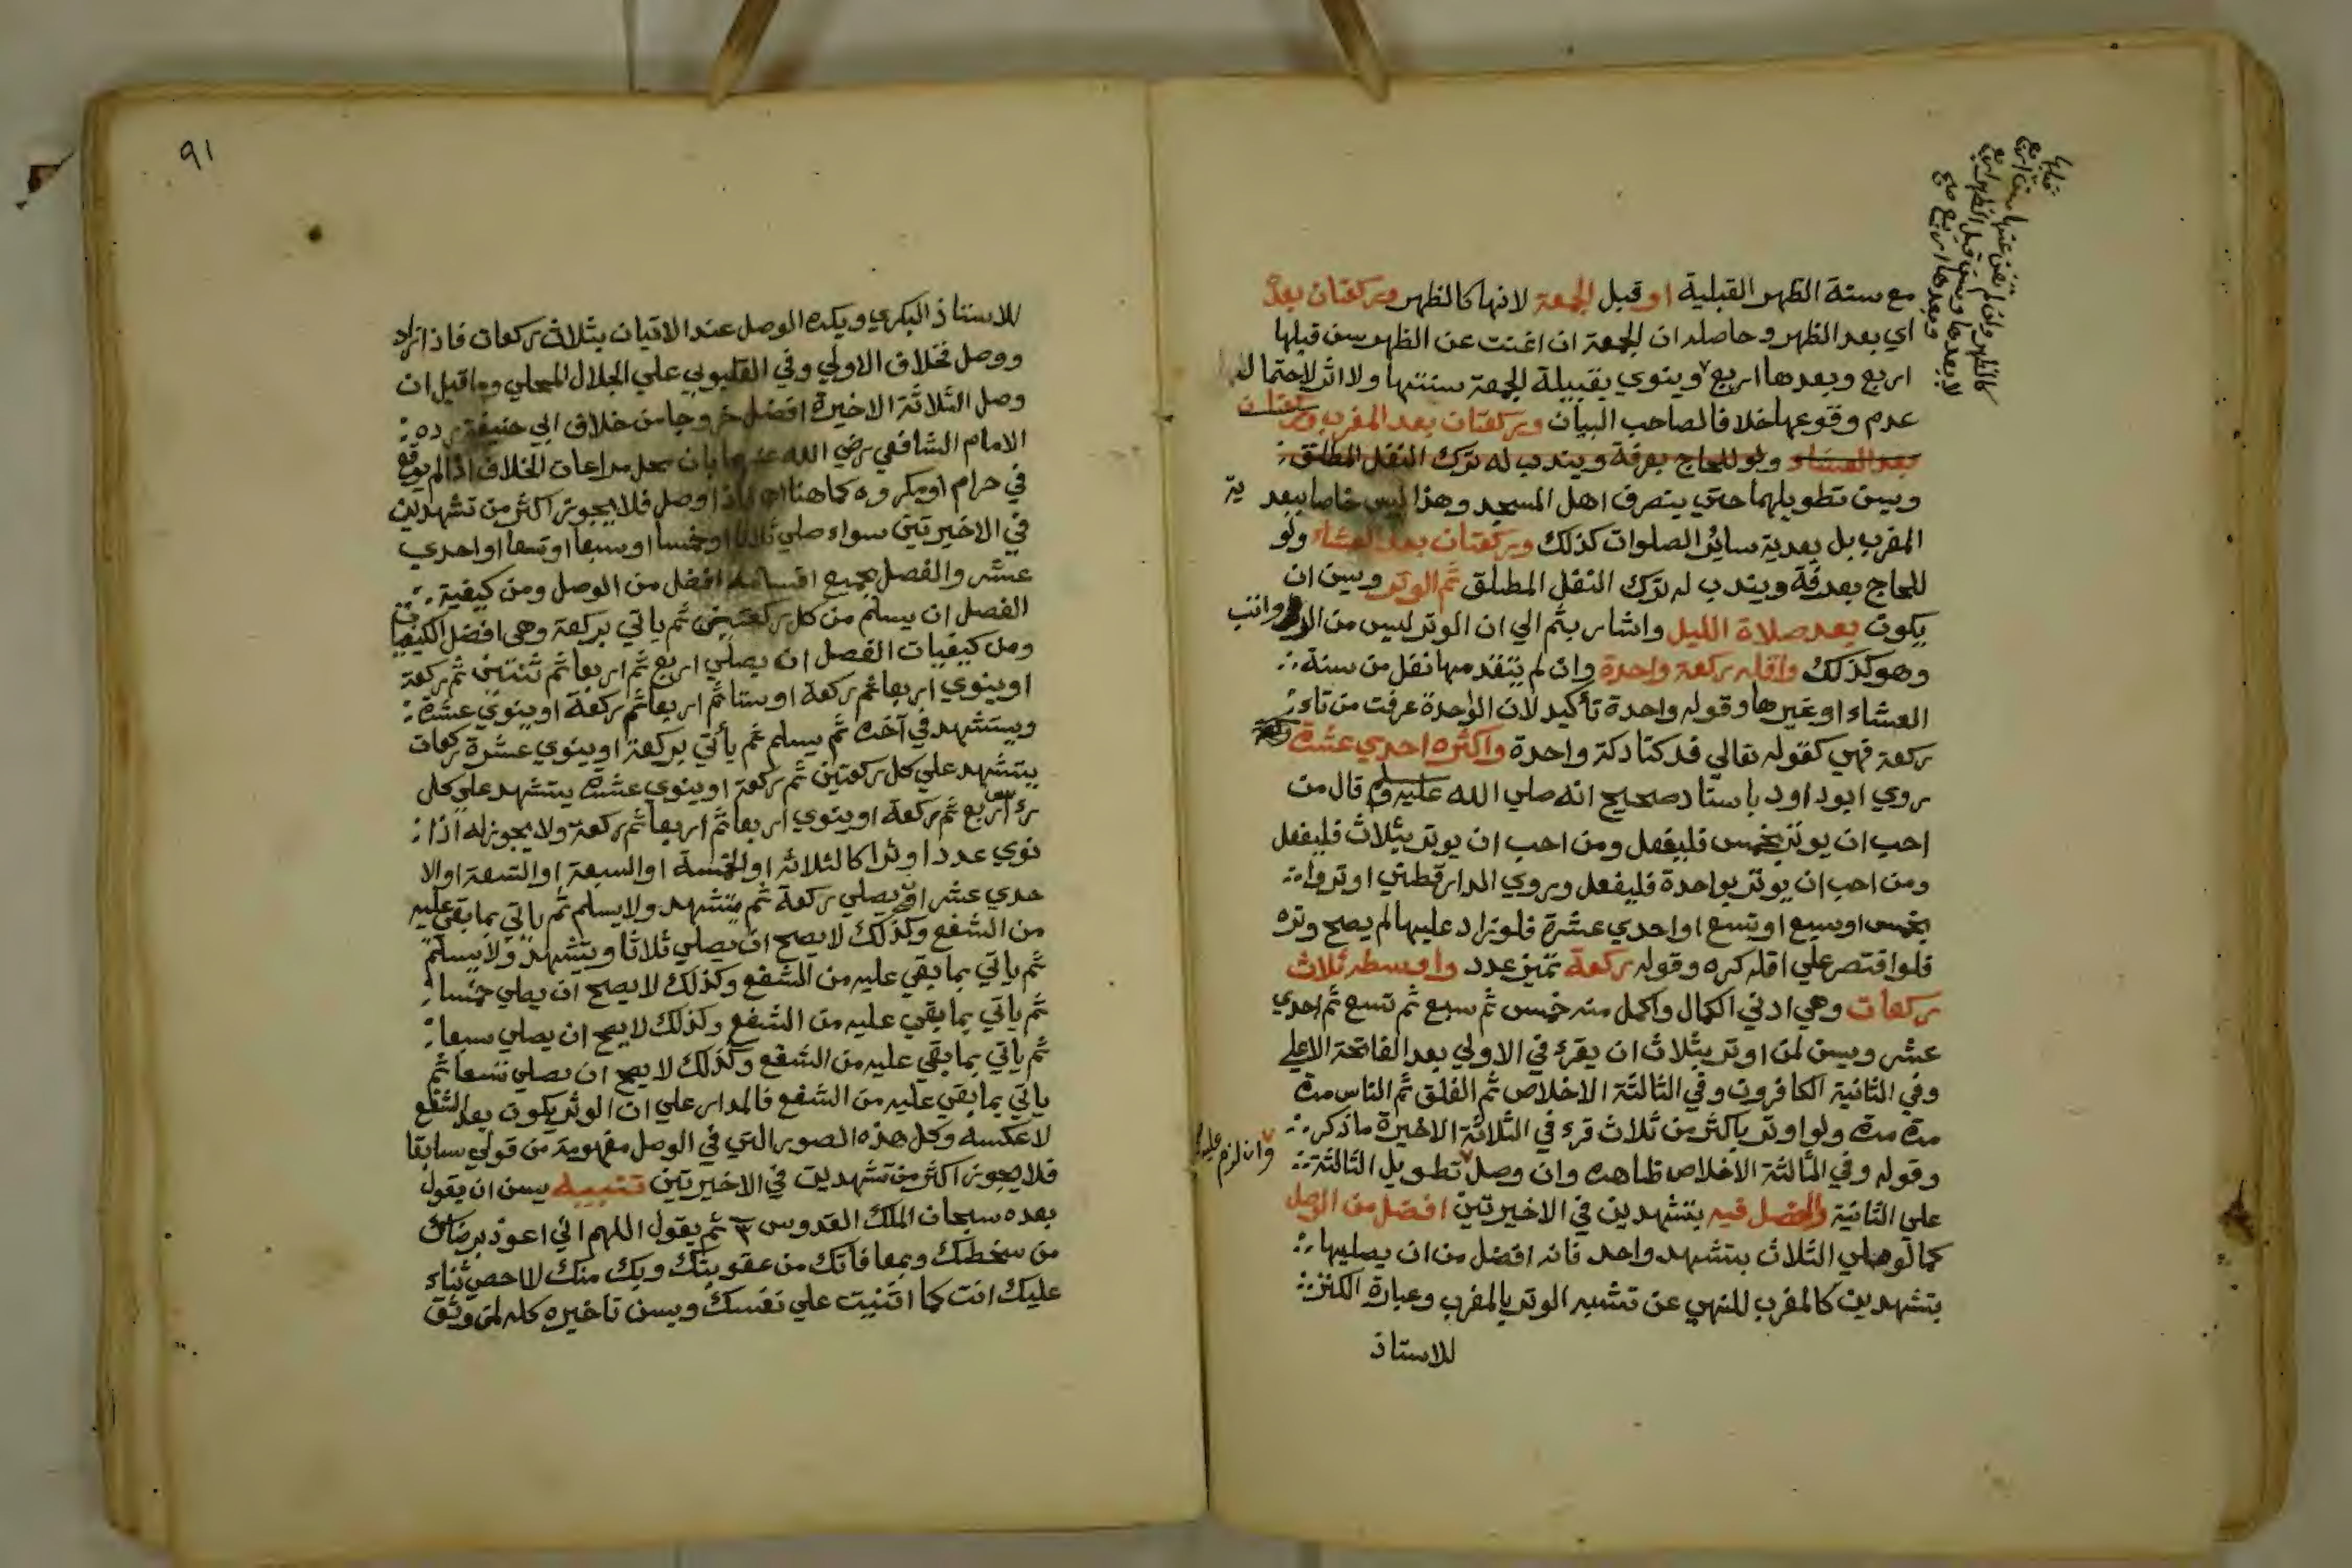 مع سنة الظهر القبلية او قبل الجمعة لانها كالظهر وركعتان بعده
اي بعد الظهر وحاصله ان الجمعة ان اغنت عن الظهر سن قبلها
اربع وبعدها اربع وينوي بقبيلة الجمعة سنتها ولا اثر لاحتمال
عدم وقوعها خلافا لصاحب البيان وركعتان بعد المغرب وركعتان
بعد العشاء ولو للحاج بعرفة ويندب له ترك النفل المطلق
ويسن تطويلهما حتي ينصرف اهل المسجد وهذا ليس خاصا ببعد ية
المغرب بل بعدية سائر الصلوات كذلك وركعتان بعد العشاء ولو
للحاج بعرفة ويندب له ترك النفل المطلق ثم الوتر ويسن ان
يكون بعد صلاة الليل واشار بثم الي ان الوتر ليس من الرواتب
وهو كذلك واقله ركعة واحدة وان لم يتقدمها نفل من سنة
العشاء او غيرها وقوله واحدة تأكيد لان الوحدة عرفت من تاء
ركعة فهي كقوله تعالي فدكتا دكة واحدة واكثره احدي عشرة
روي ابوداود باسناد صحيح انه صلي الله عليه وسلم قال من
احب ان يوتر بخمس فليفعل ومن احب ان يوتر بثلاث فليفعل
ومن احب ان يوتر بواحدة فليفعل وروي الدارقطني اوتروا
بخمس او سبع او تسع او احدي عشرة فلو زاد عليها لم يصح وتره
فلو اقتصر علي اقله كره وقوله ركعة تميز عدد واوسطه ثلاث
ركعات وهي ادني الكمال واكمل منه خمس ثم سبع ثم تسع ثم احدي
عشر ويسن لمن اوتر بثلاث ان يقرء في الاولي بعد الفاتحة الاعلي
وفي الثانية الكافرون وفي الثالثة الاخلاص ثم الفلق ثم الناس مرة
مرة مرة ولو اوتر باكثر من ثلاث قرء في الثلاثة الاخيرة ماذكر
وقوله وفي الثالثة الاخلاص ظاهره وان وصل تطويل الثالثة
علي الثانية والفصل فيه بتشهدين في الاخيرتين افضل من الوصل
كما لو صلي الثلاث بتشهد واحد فانه افضل من ان يصليها
بتشهدين كالمغرب للنهي عن تشبيه الوتر بالمغرب وعبارة الكنز
للاستاذ
وان لزم عليه
٩١
للاستاذ البكري ويكره الوصل عند الاتيان بثلاث ركعات فاذا زاد
ووصل فخلاف الاولي وفي القليوبي علي الجلال المحلي وما قيل ان
وصل الثلاثة الاخيرة افضل خروجا من خلاف ابي حنيفة رده
الامام الشافعي رضي الله عنهما بان محل مراعات الخلاف اذا لم يوقع
في حرام او مكروه كما هنا اما اذا وصل فلا يجوز اكثر من تشهدين
في الاخيرتين سواء صلي ثلاثا او خمسا او سبعا او تسعا او احدي
عشر والفصل بجميع اقسامه افضل من الوصل ومن كيفية
الفصل ان يسلم من كل ركعتين ثم ياتي بركعة وهي افضل الكيفيات
ومن كيفيات الفصل ان يصلي اربع ثم اربعا ثم ثنتين ثم ركعة
او ينوي اربعا ثم ركعة او ستا ثم اربعا ثم ركعة او ينوي عشرة
ويتشهد في آخره ثم يسلم ثم يأتي بركعة او ينوي عشرة ركعات
يتشهد علي كل ركعتين ثم ركعة او ينوي عشرة يتشهد علي كل
اربع ثم ركعة او ينوي اربعا ثم اربعا ثم ركعة ولا يجوز له اذا
نوي عددا وترا كالثلاثة او الخمسة او السبعة او التسعة او الا
حدي عشر ان يصلي ركعة ثم يتشهد ولا يسلم ثم ياتي بما بقي عليه
من الشفع وكذلك لا يصح ان يصلي ثلاثا ويتشهد ولا يسلم
ثم ياتي بما بقي عليه من الشفع وكذلك لا يصح ان يصلي خمسا
ثم ياتي بما بقي عليه من الشفع وكذلك لا يصح ان يصلي سبعا
ثم ياتي بما بقي عليه من الشفع وكذلك لا يصح ان يصلي تسعا ثم
ياتي بما بقي عليه من الشفع فالمدار علي ان الوتر يكون بعد الشفع
لا عكسه وكل هذه الصور التي في الوصل مفهومة من قولي سابقا
فلا يجوز اكثر من تشهدين في الاخيرتين تنبيه يسن ان يقول
بعده سبحان الملك القدوس ٣ ثم يقول اللهم اني اعوذ برضاك
من سخطك وبمعافاتك من عقوبتك وبك منك لا احصي ثناء
عليك انت كما اثنيت علي نفسك ويسن تاخيره كله لمن وثق